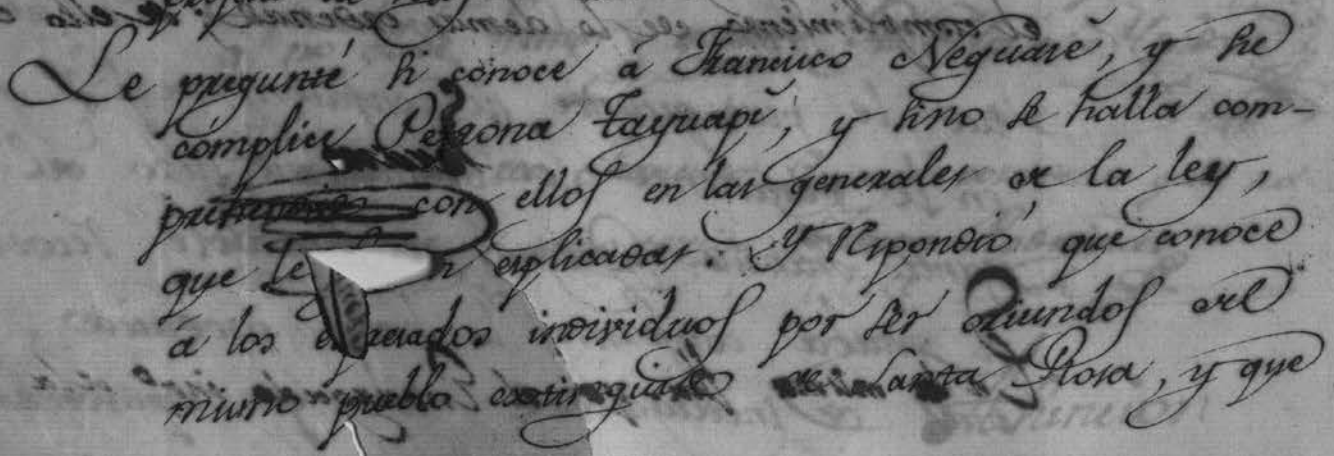 Le pregunté si conoce á Francisco Neguaré, y su
complice Petrona Tayuapí, y sino se halla com-
con ellos en las generales de la ley,
que le explicadas. y Respondió que conoce
á los individuos por ser Oriundos del
mismo pueblo de Santa Rosa, y que